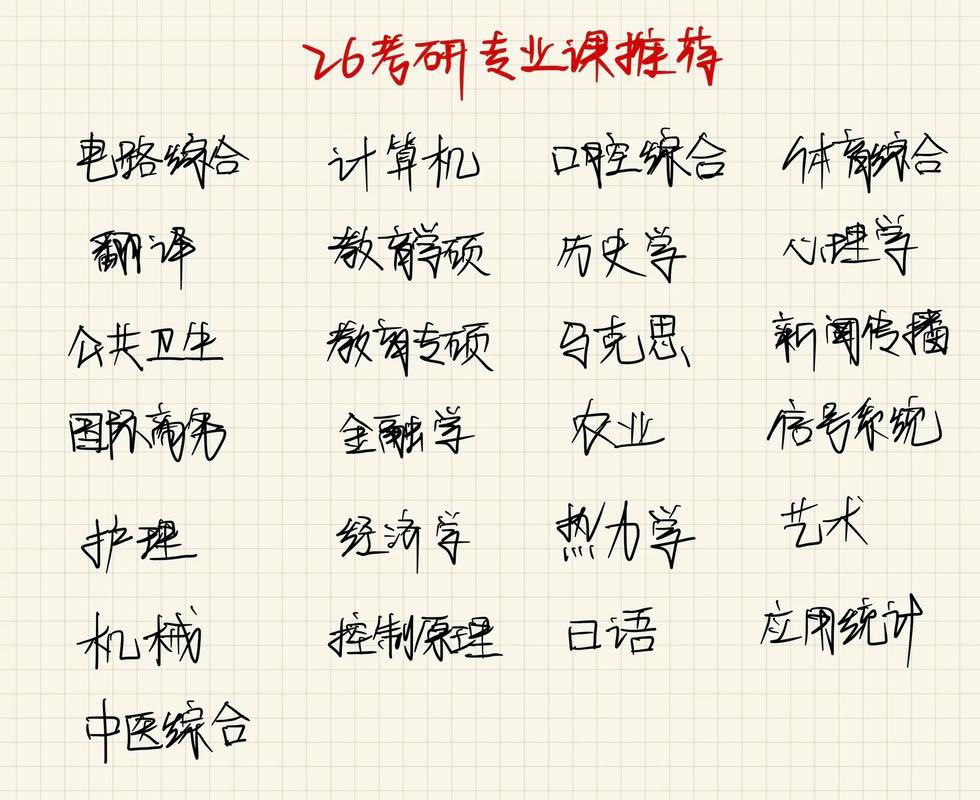 26考研专业课推荐
电路综合 计算机 口腔综合 体育综合
翻译 教育学硕 历史学 心理学
公共卫生 教育专硕 马克思 新闻传播
国际商务 金融学 农业 信号系统
护理 经济学 热力学 艺术
机械 控制原理 日语 应用统计
中医综合